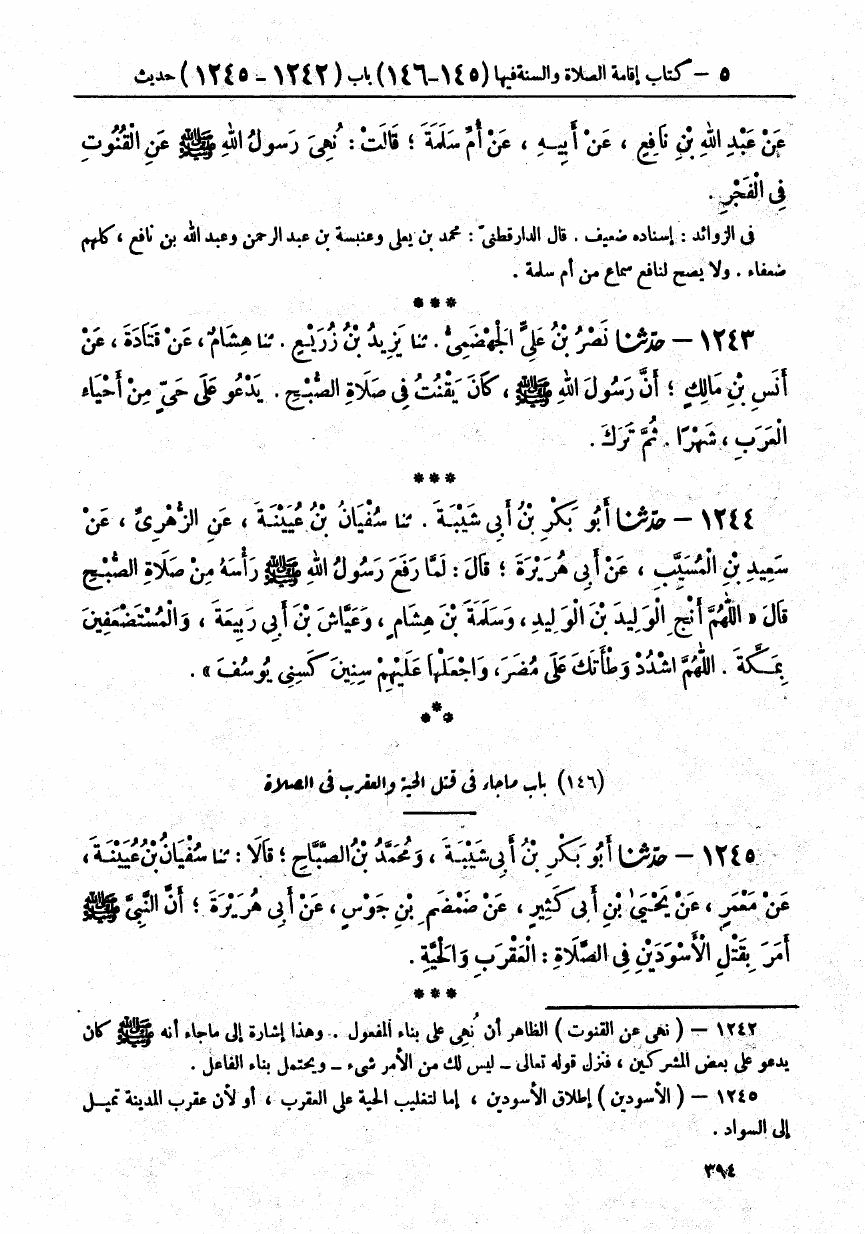 ٥ – كتاب إقامة الصلاة والسنة فيها (١٤٥-١٤٦) باب (١٢٤٢ – ١٢٤٥) حديث
عَنْ عَبْدِ اللهِ بْنِ نَافِعٍ ، عَنْ أَبِيـهِ ، عَنْ أُمِّ سَلَمَةَ ؛ قَالَتْ : نُهِىَ رَسولُ اللهِ ﷺ عَنِ الْقُنُوتِ
فِى الْفَجْرِ .
فى الزوائد : إسناده ضعيف . قال الدارقطنىّ : محمد بن يعلى وعنبسة بن عبد الرحمن وعبد الله بن نافع ، كلهم
ضعفاء . ولا يصح لنافع سماع من أم سلمة .
***
١٢٤٣ – حدّثنا نَصْرُ بْنُ عَلِىٍّ الْجَهْضَمِىُّ . ثنا يَزِيدُ بْنُ زُرَيْعٍ . ثنا هِشَامٌ ، عَنْ قَتَادَةَ ، عَنْ
أَنَسِ بْنِ مَالِكٍ ؛ أَنَّ رَسُولَ اللهِ ﷺ ، كَانَ يَقْنُتُ فِى صَلَاةِ الصُّبْحِ . يَدْعُو عَلَى حَىٍّ مِنْ أَحْيَاء
الْعَرَبِ ، شَهْرًا . ثُمَّ تَرَكَ .
***
١٢٤٤ – حدّثنا أَبُو بَكْرِ بْنُ أَبِى شَيْبَـةَ . ثنا سُفْيَانُ بْنُ عُيَيْنَـةَ ، عَنِ الزُّهْرِىِّ ، عَنْ
سَعِيدِ بْنِ الْمُسَيَّبِ ، عَنْ أَبِى هُرَيْرَةَ ؛ قَالَ : لَمَّا رَفَعَ رَسُولُ اللهِ ﷺ رَأْسَهُ مِنْ صَلَاةِ الصُّبْحِ
قَالَ « اللّٰهُمَّ أَنْجِ الْوَلِيدَ بْنَ الْوَلِيدِ ، وَسَلَمَةَ بْنَ هِشَامٍ ، وَعَيَّاشَ بْنَ أَبِى رَبِيعَةَ ، وَالْمُسْتَضْعَفِينَ
بِمَـكَّةَ . اللّٰهُمَّ اشْدُدْ وَطْأَتَكَ عَلَى مُضَرَ ، وَاجْعَلْهَا عَلَيْهِمْ سِنِينَ كَسِنِى يُوسُفَ » .
***
(١٤٦) باب ماجاء فى قتل الحية والعقرب فى الصلاة
١٢٤٥ – حدّثنا أَبُو بَكْرِ بْنُ أَبِى شَيْبَـةَ ، وَمُحَمَّدُ بْنُ الصَّبَّاحِ ؛ قَالَا : ثنا سُفْيَانُ بْنُ عُيَيْنَـةَ ،
عَنْ مَعْمَرٍ ، عَنْ يَحْيَىٰ بْنِ أَبِى كَثِيرٍ ، عَنْ ضَمْضَمِ بْنِ جَوْسٍ ، عَنْ أَبِى هُرَيْرَةَ ؛ أَنَّ النَّبِىَّ ﷺ
أَمَرَ بِقَتْلِ الْأَسْوَدَيْنِ فِى الصَّلَاةِ : الْعَقْرَبِ وَالْحَيَّةِ .
***
١٢٤٢ – ( نهى عن القنوت ) الظاهر أن نُهِى على بناء المفعول . وهذا إشارة إلى ماجاء أنه ﷺ كان
يدعو على بعض المشركين ، فنزل قوله تعالى – ليس لك من الأمر شىء – ويحتمل بناء الفاعل .
١٢٤٥ – ( الأسودين ) إطلاق الأسودين ، إما لتغليب الحية على العقرب ، أو لأن عقرب المدينة تميـل
إلى السواد .
٣٩٤